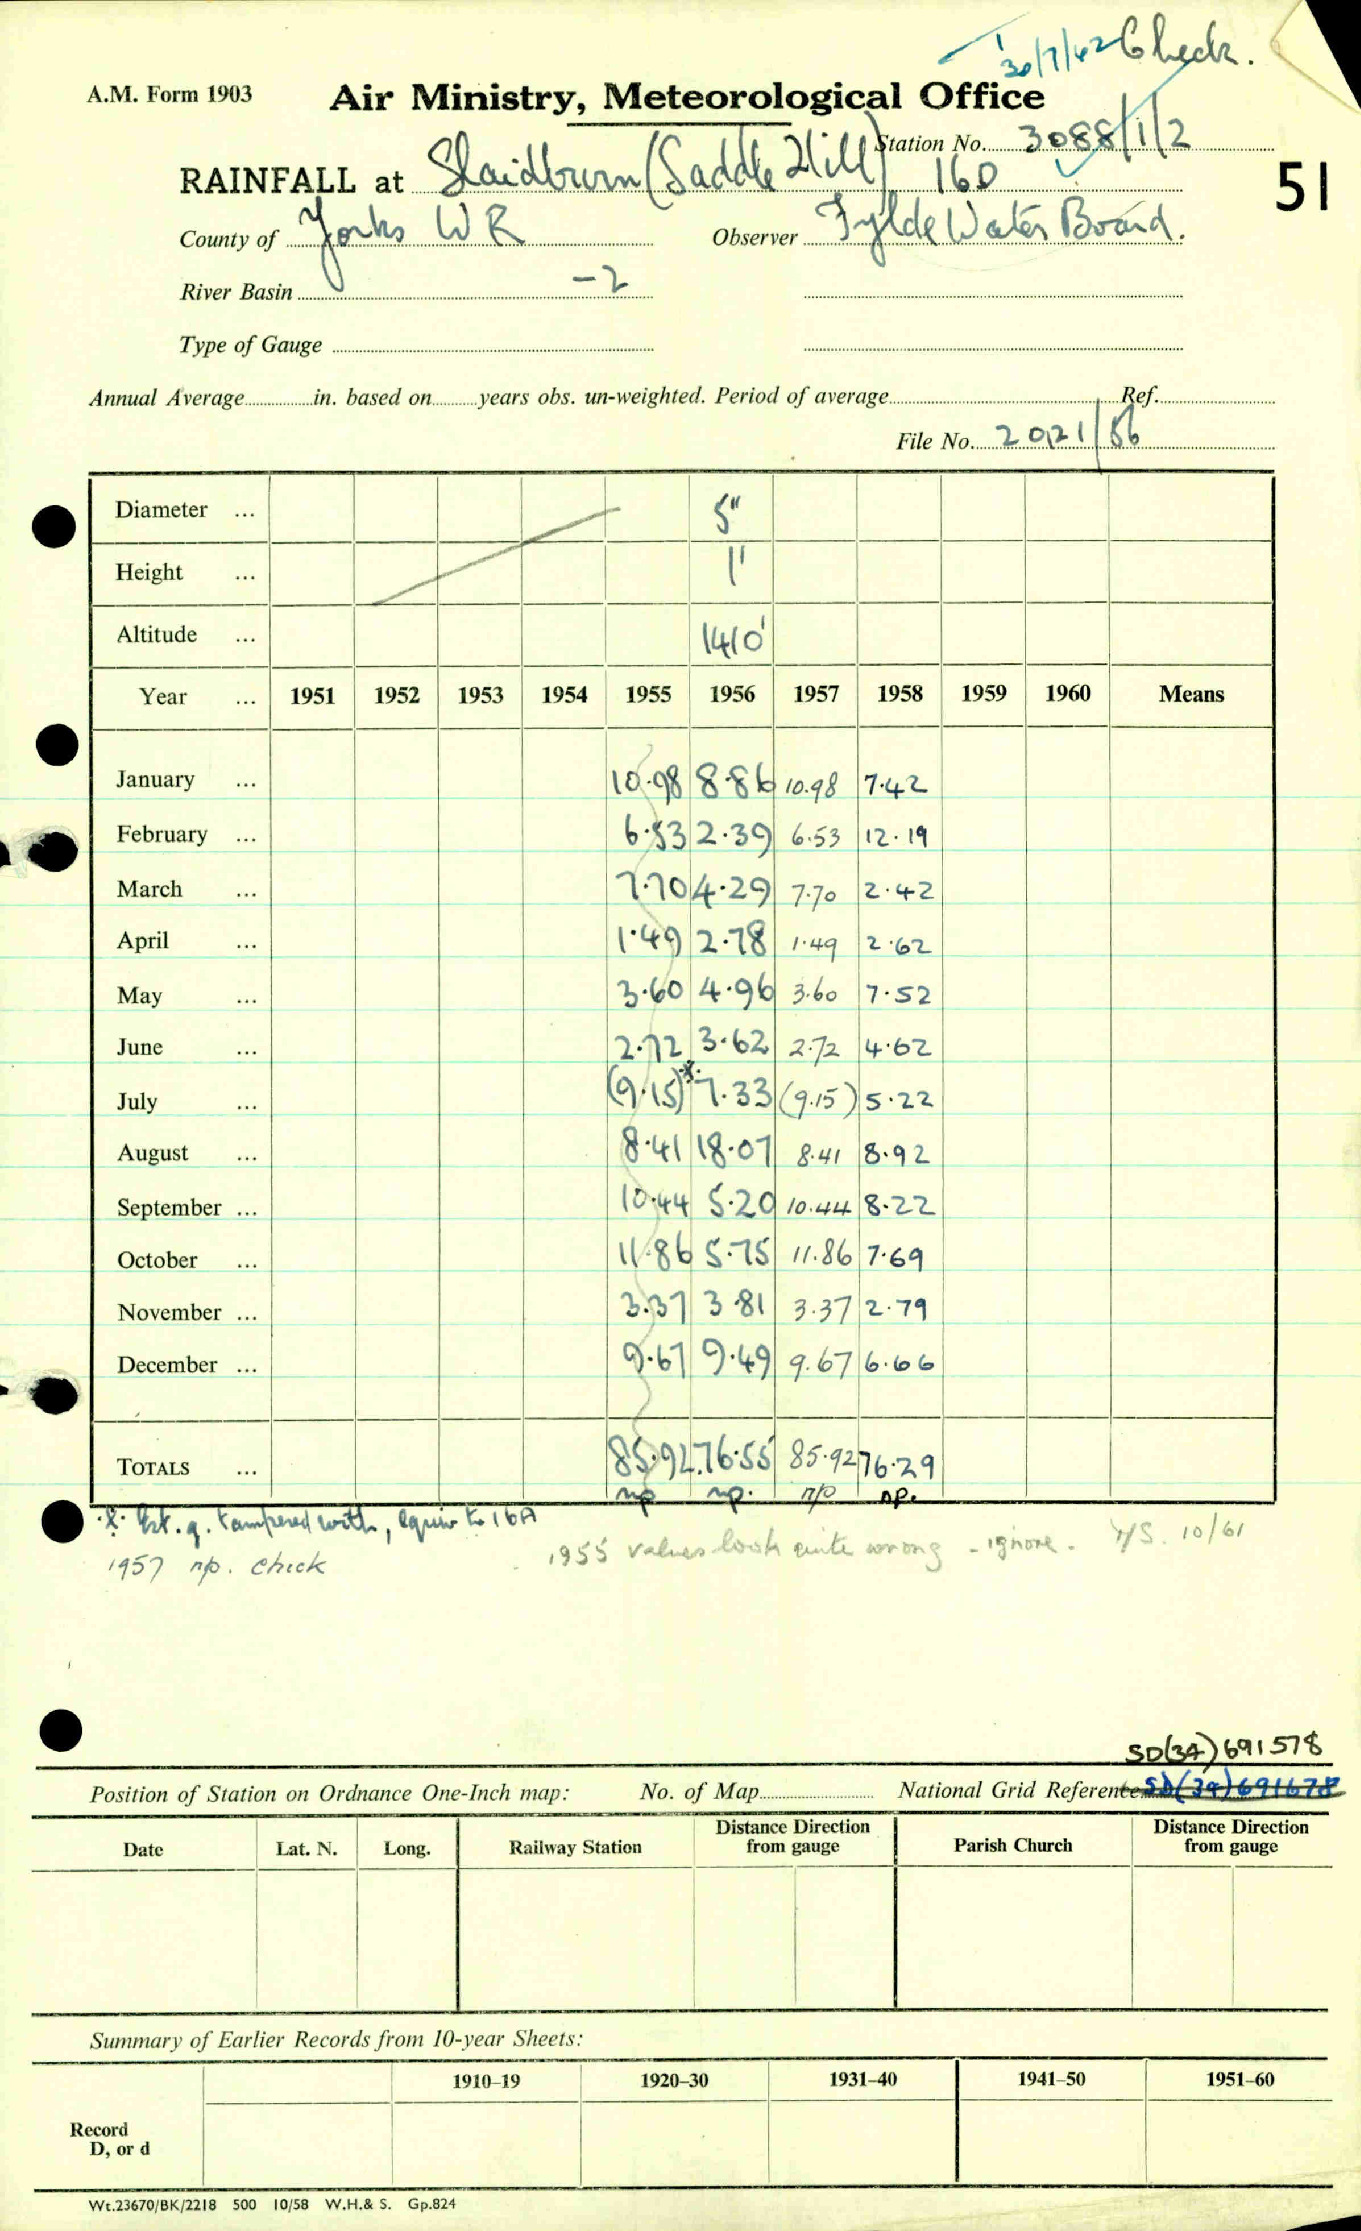 30/7/62 Check.
A.M. Form 1903 Air Ministry, Meteorological Office
Station No. 3088/1/2
RAINFALL at Slaidburn (Saddle Hill) 16D 51
County of Yorks WR Observer Fylde Water Board.
River Basin -2
Type of Gauge
Annual Average in. based on years obs. un-weighted. Period of average Ref.
File No. 2021/56
Diameter ... 5"
Height ... 1'
Altitude ... 1410'
Year ... 1951 1952 1953 1954 1955 1956 1957 1958 1959 1960 Means
January ... 10.98 8.86 10.98 7.42
February ... 6.53 2.39 6.53 12.19
March ... 7.70 4.29 7.70 2.42
April ... 1.49 2.78 1.49 2.62
May ... 3.60 4.96 3.60 7.52
June ... 2.72 3.62 2.72 4.62
July ... (9.15)* 7.33 (9.15) 5.22
August ... 8.41 18.07 8.41 8.92
September ... 10.44 5.20 10.44 8.22
October ... 11.86 5.75 11.86 7.69
November ... 3.37 3.81 3.37 2.79
December ... 9.67 9.49 9.67 6.66
TOTALS ... 85.92 76.55 85.92 76.29
np np. n/p np.
* Est. g. tampered with, equiv to 16A
1957 n/p. check 1955 values look quite wrong - ignore. 10/61
SD(34)691578
Position of Station on Ordnance One-Inch map: No. of Map National Grid Reference SD(34)691678
Date Lat. N. Long. Railway Station Distance Direction from gauge Parish Church Distance Direction from gauge
Summary of Earlier Records from 10-year Sheets:
1910–19 1920–30 1931–40 1941–50 1951–60
Record
D, or d
Wt.23670/BK/2218 500 10/58 W.H.& S. Gp.824